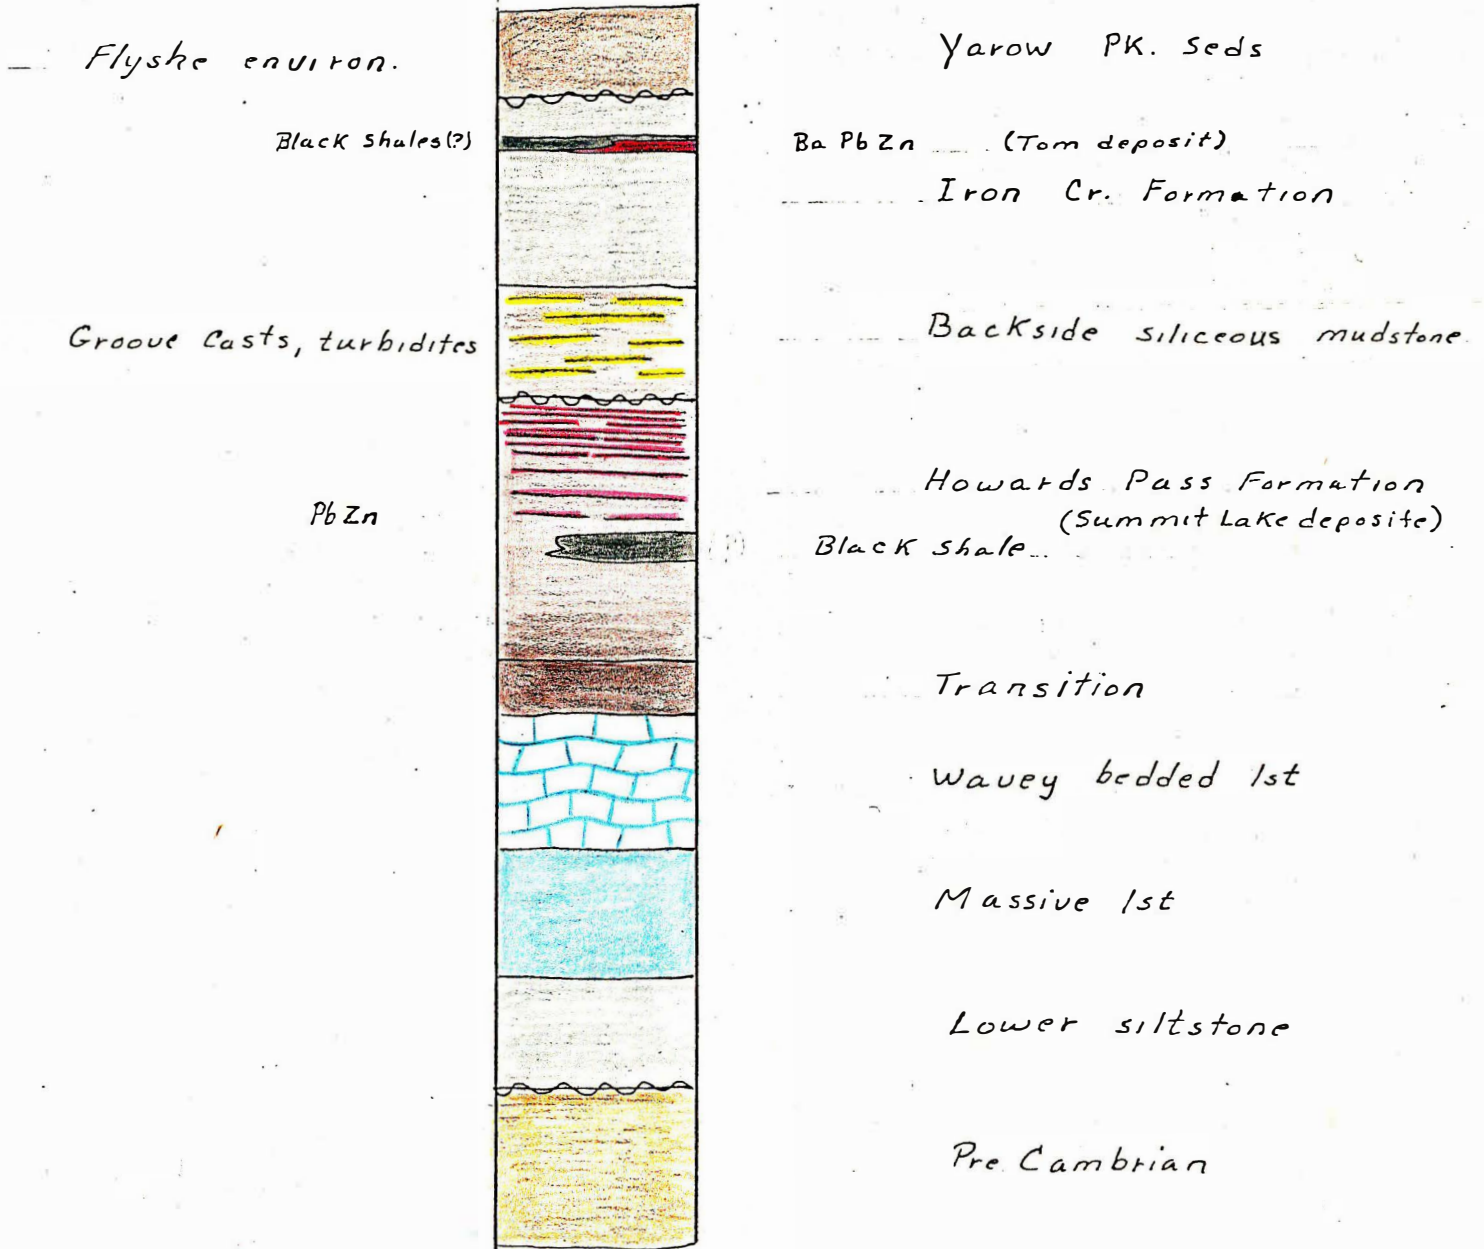 Flyshe environ.
Yarow PK. Seds
Black Shales(?)
Ba Pb Zn (Tom deposit)
Iron Cr. Formation
Groove Casts, turbidites
Backside siliceous mudstone.
Howards Pass Formation
(Summit Lake deposite)
Pb Zn
Black shale
Transition
Wavey bedded lst
Massive lst
Lower siltstone
Pre Cambrian